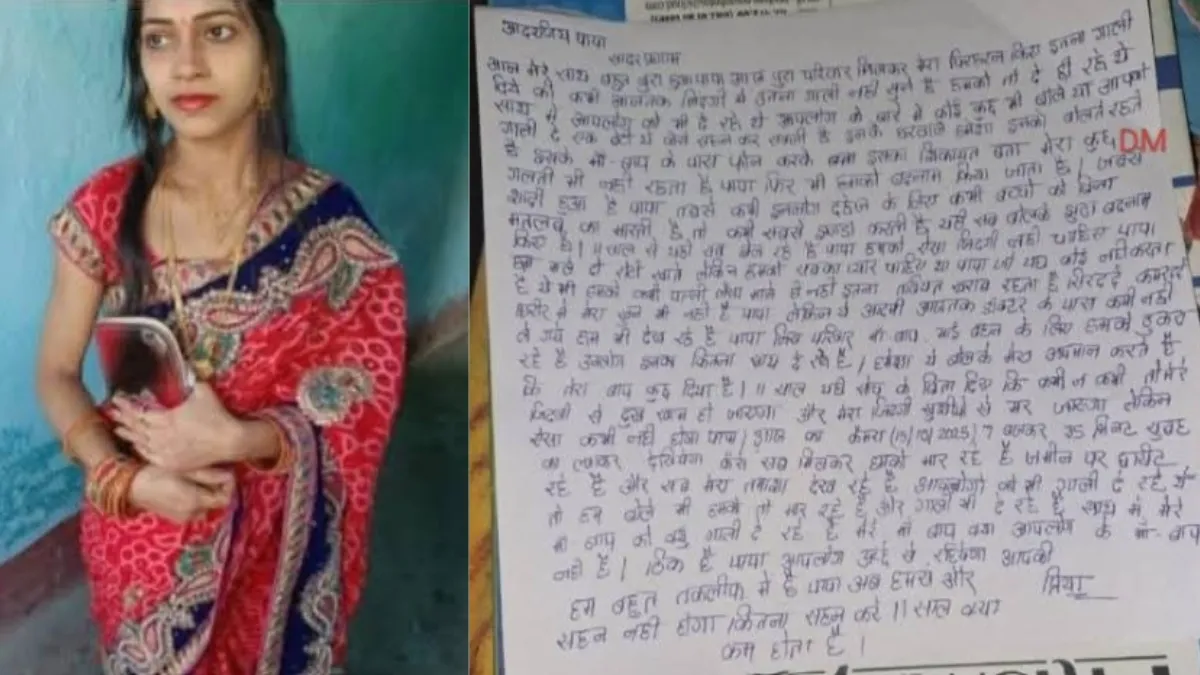 आदरणिय पापा
सादर प्रणाम
आज मेरे साथ बहुत बुरा हुआ पापा आज पूरा परिवार मिलकर मेरा किया इतना गाली
दिये की कभी आजतक जिंदगी में इतना गाली नहीं सुने है हमको तो दे ही रहे थे
साथ में आपलोग को भी दे रहे थे आपलोग के बारे में कोई कुछ भी बोले या आपको
गाली दे एक बेटी ये कैसे सहन कर सकती है इनके घरवाले हमेशा इनको बोलते रहते
है इसके माँ-बाप के पास फोन करके बता इसका शिकायत बता मेरा कुछ
DM
गलती भी नहीं रहता है पापा फिर भी हमको बदनाम किया जाता है। जबसे
शादी हुआ है पापा तबसे कभी इनलोग दहेज के लिए कभी बच्चों को बिना
मतलब का मारती है, तो कभी सबसे झगडा करती है यही सब बोलके झूठा बदनाम
किए है। 11 साल से यही सब झेल रहे है पापा हमको ऐसा जिंदगी नहीं चाहिए पापा
हम भले दो रोटी खाते लेकिन हमको सबका प्यार चाहिए था पापा जो यहा कोई नहीं करता
है ये भी हमको कभी पत्नी जैसा माने ही नहीं इतना तबियत खराब रहता है सिरदर्द कमरदर्द
शरीर में मेरा खून भी नहीं है पापा लेकिन ये आदमी आजतक डॉक्टर के पास कभी नहीं
ले गये हम भी देख रहे है पापा जिस परिवार माँ बाप, भाई बहन के लिए हमको
रहे है उनलोग इनका कितना साथ दे रहे है। हमेशा ये बोलके मेरा अपमान करते है
कि तेरा बाप कुछ दिया है। 11 साल यही सोच के बिता दिए कि कभी न कभी तो मेरे
जिंदगी से दुख खत्म हो जाएगा और मेरा जिंदगी खुशीयों से भर जाएगा लेकिन
ऐसा कभी नहीं होगा पापा। आज का कैमरा (15/10/2025) 7 बजकर 35 मिनट सुबह
का लगाकर देखियेगा कैसे सब मिलकर हमको मार रहे है जमीन पर घसीट
रहे है और सब मेरा तमाशा देख रहे है आपलोगो को भी गाली दे रहे थे
तो हम बोले भी हमको तो मार रहे है और गाली भी दे रहे है साथ में मेरे
माँ बाप को क्यु गाली दे रहे है मेरे माँ बाप क्या आपलोग के माँ-बाप
नहीं है। ठिक है पापा आपलोग अच्छे से रहियेगा आपकी
प्रिया
हम बहुत तकलीफ में है पापा अब हमसे और
सहन नहीं होगा। कितना सहन करे 11 साल क्या
कम होता है।